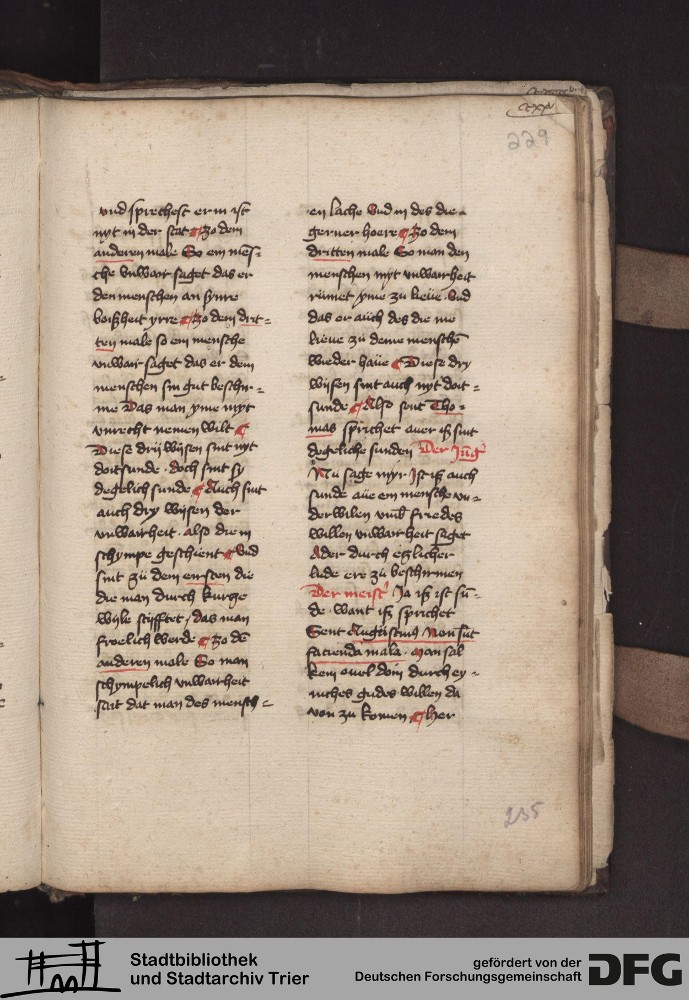 ccxxv
229
vnd sprechest er in ist
nyt in der stat Zo dem
anderen male So ein mēs-
che vnwair saget das er
den menschen an synre
boißheit yrre Zo dem drit-
ten male so ein mensche
vnwair saget das er dem
menschen sin gut beschir-
me Das man yme nyt
vnrecht nemen wilt
Diese drij wijsen sint nyt
doitsunde . doch sint sy
degelich sunde Auch sint
auch dry wijsen der
vnwairheit . also die in
schympe geschient Vnd
sint zů dem eirsten die
die man durch kurtze
wyle stifftet / das man
froelich werde Zo dē
anderen male So man
schympelich vnwairheit
sait dat man des mensch-
en lache Vnd in des die
gerner hoere Zo dem
dritten male So man den
menschen myt vnwairheit
rümet yme zu lieue . Vnd
das er auch des die me
lieue zu deme menschē
wieder haue Diese dry
wijsen sint auch nyt doit-
sunde Also sent Tho-
mas sprichet auer iß sint
degeliche sunden Der Jūg'
Nu sage myr Ist iß auch
sunde aue ein mensche vn-
der wilen vmb friedes
willen vnwairheit saget
Ader durch etzlicher
lude ere zu beschirmen
Der meist' Ja iß ist sū-
de . want iß sprichet
Sent Augustinus Non sūt
facienda mala . Man sal
kein ouel doin durch ey-
niches gudes willen da
von zu komen Her
235
Stadtbibliothek
und Stadtarchiv Trier
gefördert von der
Deutschen Forschungsgemeinschaft
DFG